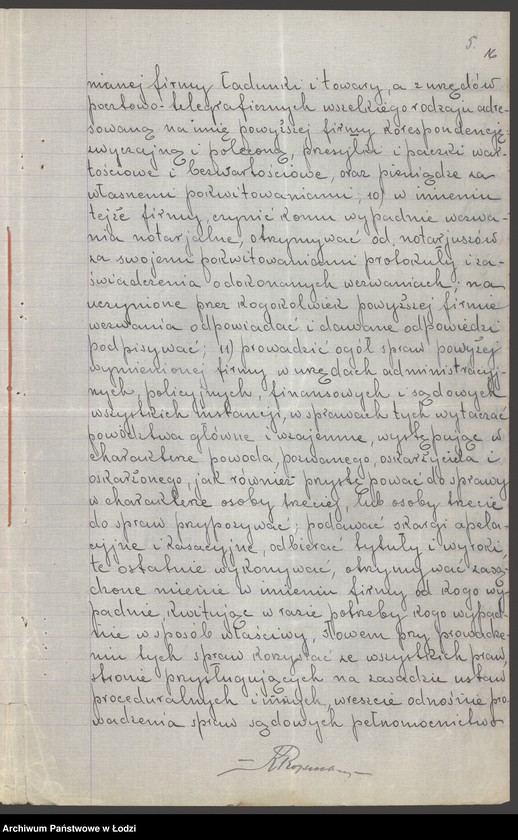 5.
16
nianej firmy ładunki i towary, a z urzędów
pocztowo-telegraficznych wszelkiego rodzaju adre-
sowaną na imię powyższej firmy korespondencję
zwyczajną i poleconą, przesyłki i paczki war-
tościowe i bezwartościowe, oraz pieniądze za
własnemi pokwitowaniami; 10) w imieniu
tejże firmy, czynić komu wypadnie wezwa-
nia notarjalne, otrzymywać od notarjuszów
za swojemi pokwitowaniami protokuły i za-
świadczenia o dokonanych wezwaniach; na
uczynione przez kogokolwiek powyższej firmie
wezwania odpowiadać i dawane odpowiedzi
podpisywać; 11) prowadzić ogół spraw powyżej
wymienionej firmy w urzędach administracyj-
nych, policyjnych, finansowych i sądowych
wszystkich instancji, w sprawach tych wytaczać
powództwa główne i wzajemne, występując w
charakterze powoda, pozwanego, oskarżyciela i
oskarżonego, jak również przystępować do sprawy
w charakterze osoby trzeciej, lub osoby trzecie
do spraw przypozywać; podawać skargi apela-
cyjne i kasacyjne, odbierać tytuły i wyroki,
te ostatnie wykonywać, otrzymywać zasą-
dzone mienie w imieniu firmy od kogo wy-
padnie, kwitując w razie potrzeby kogo wypad-
nie w sposób właściwy, słowem przy prowadze-
niu tych spraw korzystać ze wszystkich praw,
stronie przysługujących na zasadzie ustaw
proceduralnych i innych, wreszcie odnośnie pro-
wadzenia spraw sądowych pełnomocnictwo
Archiwum Państwowe w Łodzi